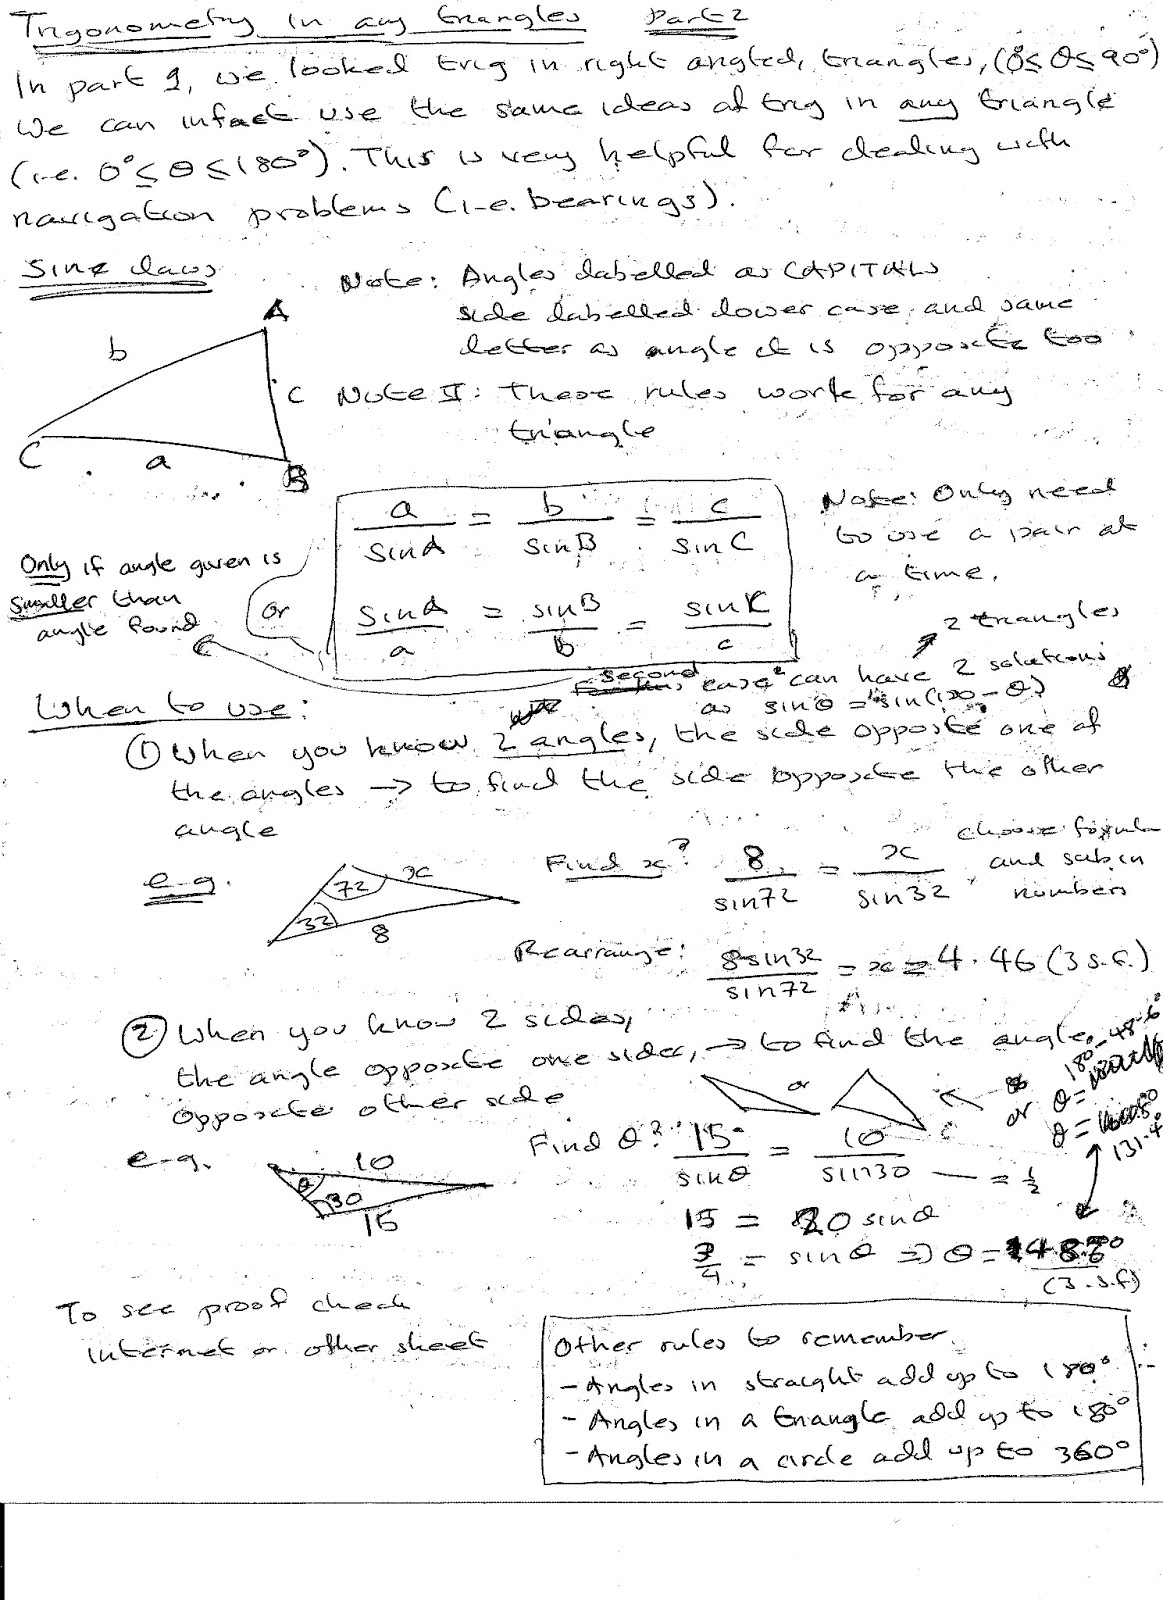 Trigonometry in any triangles Part 2
In part 1, we looked trig in right angled, triangles, (0≤ θ≤ 90°)
We can infact use the same ideas of trig in any triangle
(i.e. 0°≤ θ ≤ 180°). This is very helpful for dealing with
navigation problems (i.e. bearings).
Sine Laws
Note: Angles labelled as CAPITALS
side labelled lower case and same
letter as angle it is opposite too
Note II: These rules work for any
triangle
A
b
c
C
a
B
a/sinA = b/sinB = c/sinC
or
sinA/a = sinB/b = sinC/c
Note: Only need
to use a pair at
a time.
Only if angle given is
smaller than
angle found
2 triangles
second case can have 2 solutions
as sinθ = sin(180-θ)
When to use:
① When you know 2 angles, the side opposite one of
the angles → to find the side opposite the other
angle
e-g.
72
x
32
8
Find x? 8/sin72 = x/sin32
choose formula
and sub in
numbers
Rearrange: 8sin32/sin72 = x = 4.46 (3 s.f.)
② When you know 2 sides,
the angle opposite one sides, → to find the angle
opposite other side
or
or θ = 180-48.6
θ = 131.4
e-g.
10
θ
30
15
Find θ? 15/sinθ = 10/sin30 — = ½
15 = 20 sinθ
3/4 = sinθ ⇒ θ = 48.6°
(3.s.f)
To see proof check
internet or other sheet
Other rules to remember
- Angles in straight add up to 180°
- Angles in a triangle add up to 180°
- Angles in a circle add up to 360°